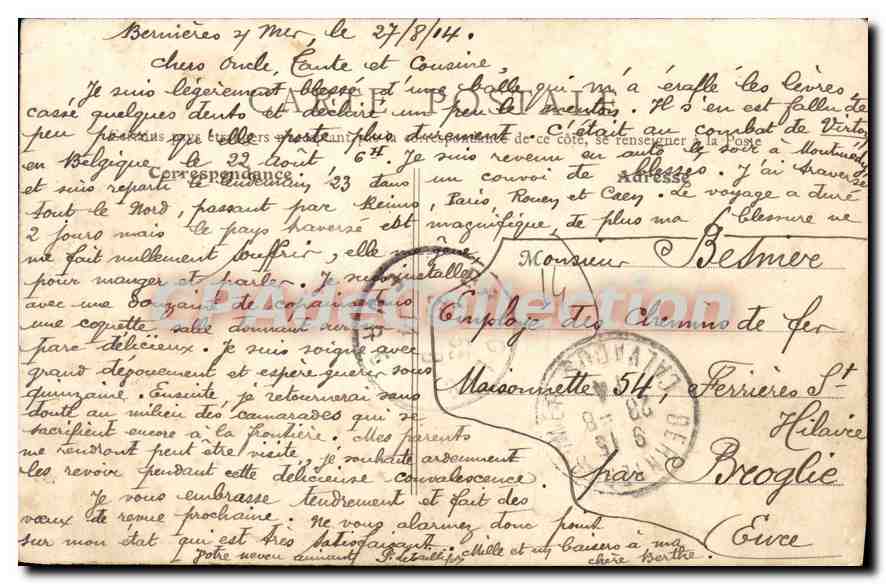 Bernières s/ Mer, le 27/8/14.
Chers Oncle, Tante et Cousine,
Je suis légèrement blessé d'une balle qui m'a éraflé les lèvres
CARTE POSTALE
cassé quelques dents et déchiré un peu le menton. Il s'en est fallu de
peu pour qu'elle porte plus durement. C'était au combat de Virton
Tous les pays étrangers n'acceptant pas la correspondance de ce côté, se renseigner à la Poste
en Belgique, le 22 août 6H. Je suis revenu en auto le soir à Montmédy
Correspondance
Adresse
et suis reparti le lendemain 23 dans un convoi de blessés. J'ai traversé
tout le Nord, passant par Reims, Paris, Rouen et Caen. Le voyage a duré
2 jours mais le pays traversé est magnifique, de plus ma blessure ne
me fait nullement souffrir, elle me gêne
pour manger et parler. Je suis installé
avec une douzaine de copains dans
une coquette salle donnant sur
parc délicieux. Je suis soigné avec
grand dévouement et espère guérir sous
quinzaine. Ensuite, je retournerai sans
doute au milieu des camarades qui se
sacrifient encore à la frontière. Mes parents
me rendront peut être visite, je souhaite ardemment
les revoir pendant cette délicieuse convalescence.
Je vous embrasse tendrement et fait des
vœux de revue prochaine. Ne vous alarmez donc point
sur mon état qui est très satisfaisant. Mille et un baisers à ma
chère Berthe
Votre neveu aimant
Monsieur Besnier
Employé des Chemins de fer
Maisonnette 54, Ferrières St
Hilaire
par Broglie
Eure
14
CALVADOS
CPArtcollection